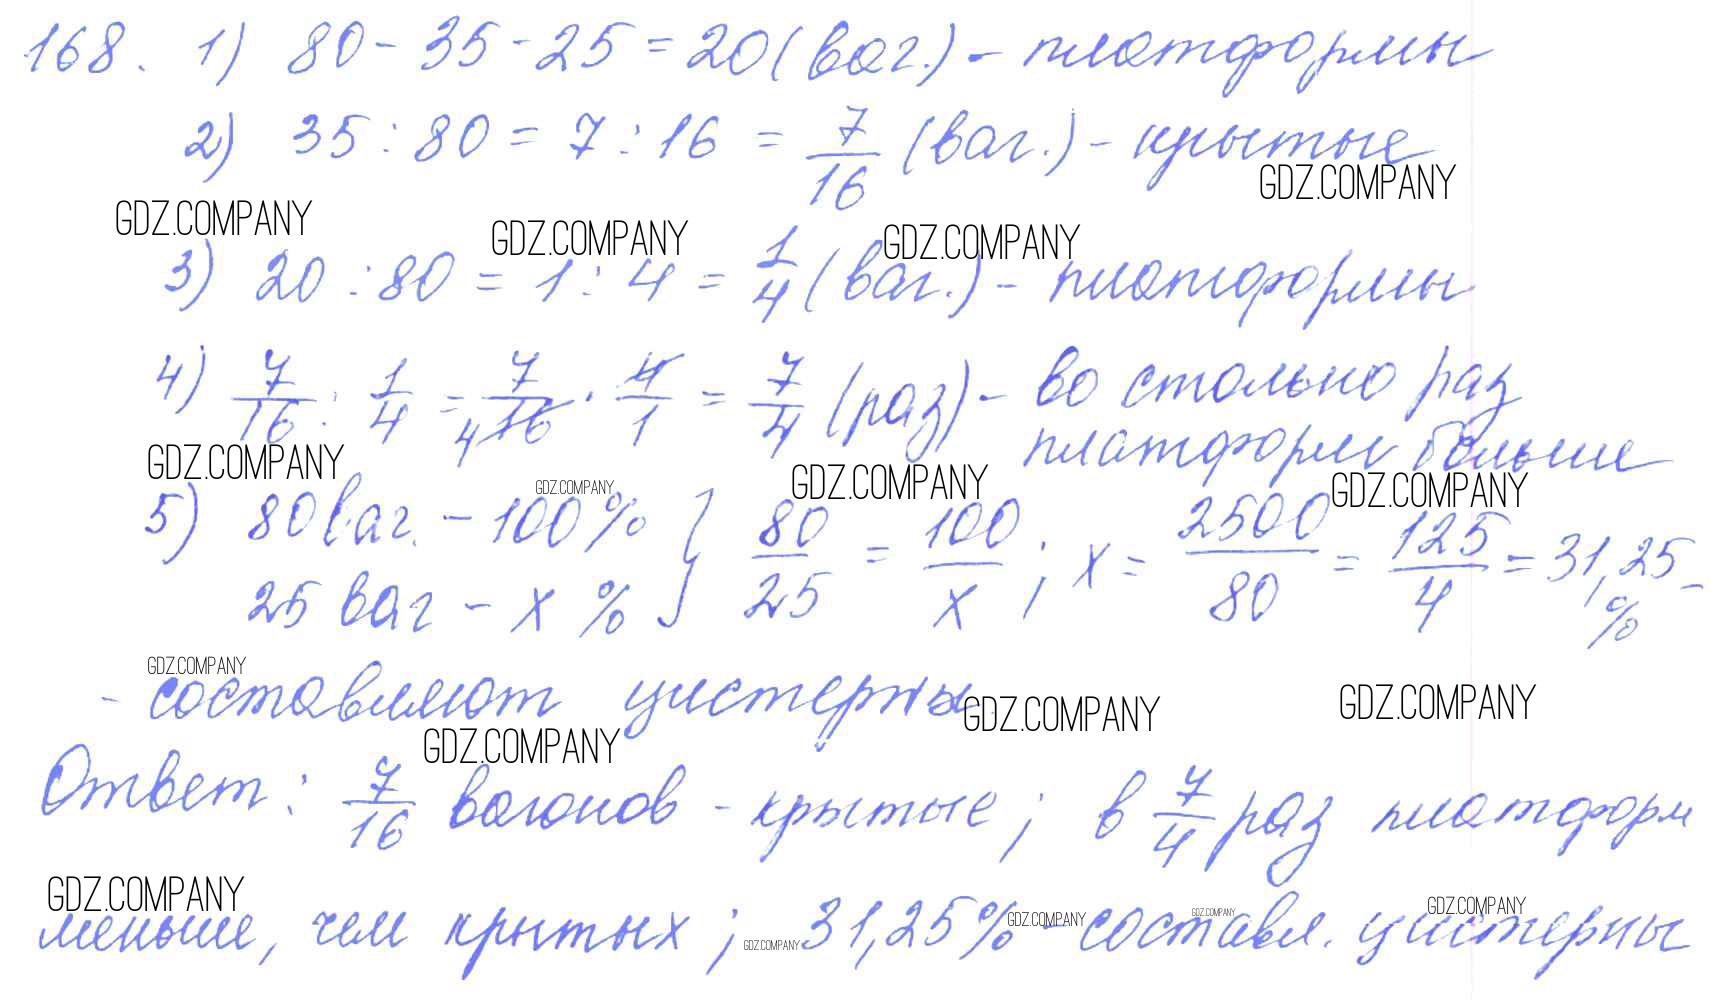 168. 1) 80 - 35 - 25 = 20 (ваг.) - платформы
2) 35 : 80 = 7 : 16 = 7/16 (ваг.) - крытые
GDZ.COMPANY
GDZ.COMPANY GDZ.COMPANY GDZ.COMPANY
3) 20 : 80 = 1 : 4 = 1/4 (ваг.) - платформы
4) 7/16 : 1/4 = 7/4 16 · 4/1 = 7/4 (раз) - во столько раз
платформ больше
GDZ.COMPANY GDZ.COMPANY GDZ.COMPANY GDZ.COMPANY
5) 80 ваг. - 100% } 80/25 = 100/x ; x = 2500/80 = 125/4 = 31,25 -
25 ваг - x % %
GDZ.COMPANY
- составляют цистерны
GDZ.COMPANY GDZ.COMPANY
GDZ.COMPANY
Ответ: 7/16 вагонов - крытые; в 7/4 раз платформ
GDZ.COMPANY GDZ.COMPANY GDZ.COMPANY GDZ.COMPANY GDZ.COMPANY
меньше, чем крытых; 31,25% - составл. цистерны